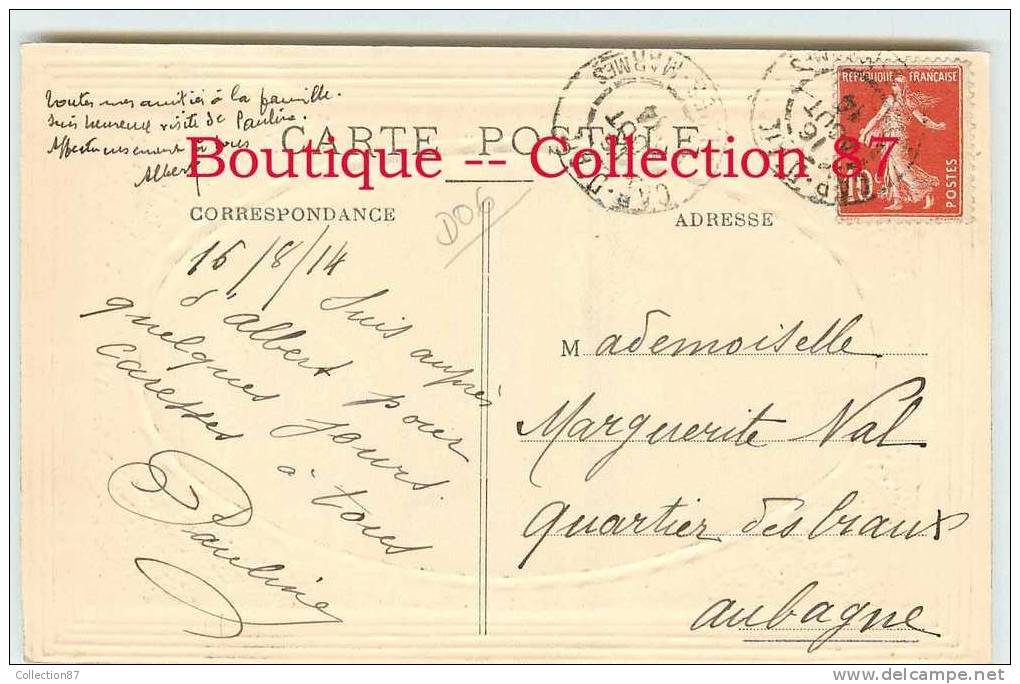 toutes mes amitiés à la famille.
suis heureux visite de Pauline.
Affectueusement à vous
Albert
CARTE POSTALE
Boutique -- Collection 87
RÉPUBLIQUE FRANÇAISE
POSTES
10
CORRESPONDANCE
ADRESSE
DO6
16/8/14
Suis auprès
d'albert pour
quelques jours.
caresses à tous
Pauline
Mademoiselle
Marguerite Val
quartier des Craux
aubagne
Collection87
www.delcampe.net